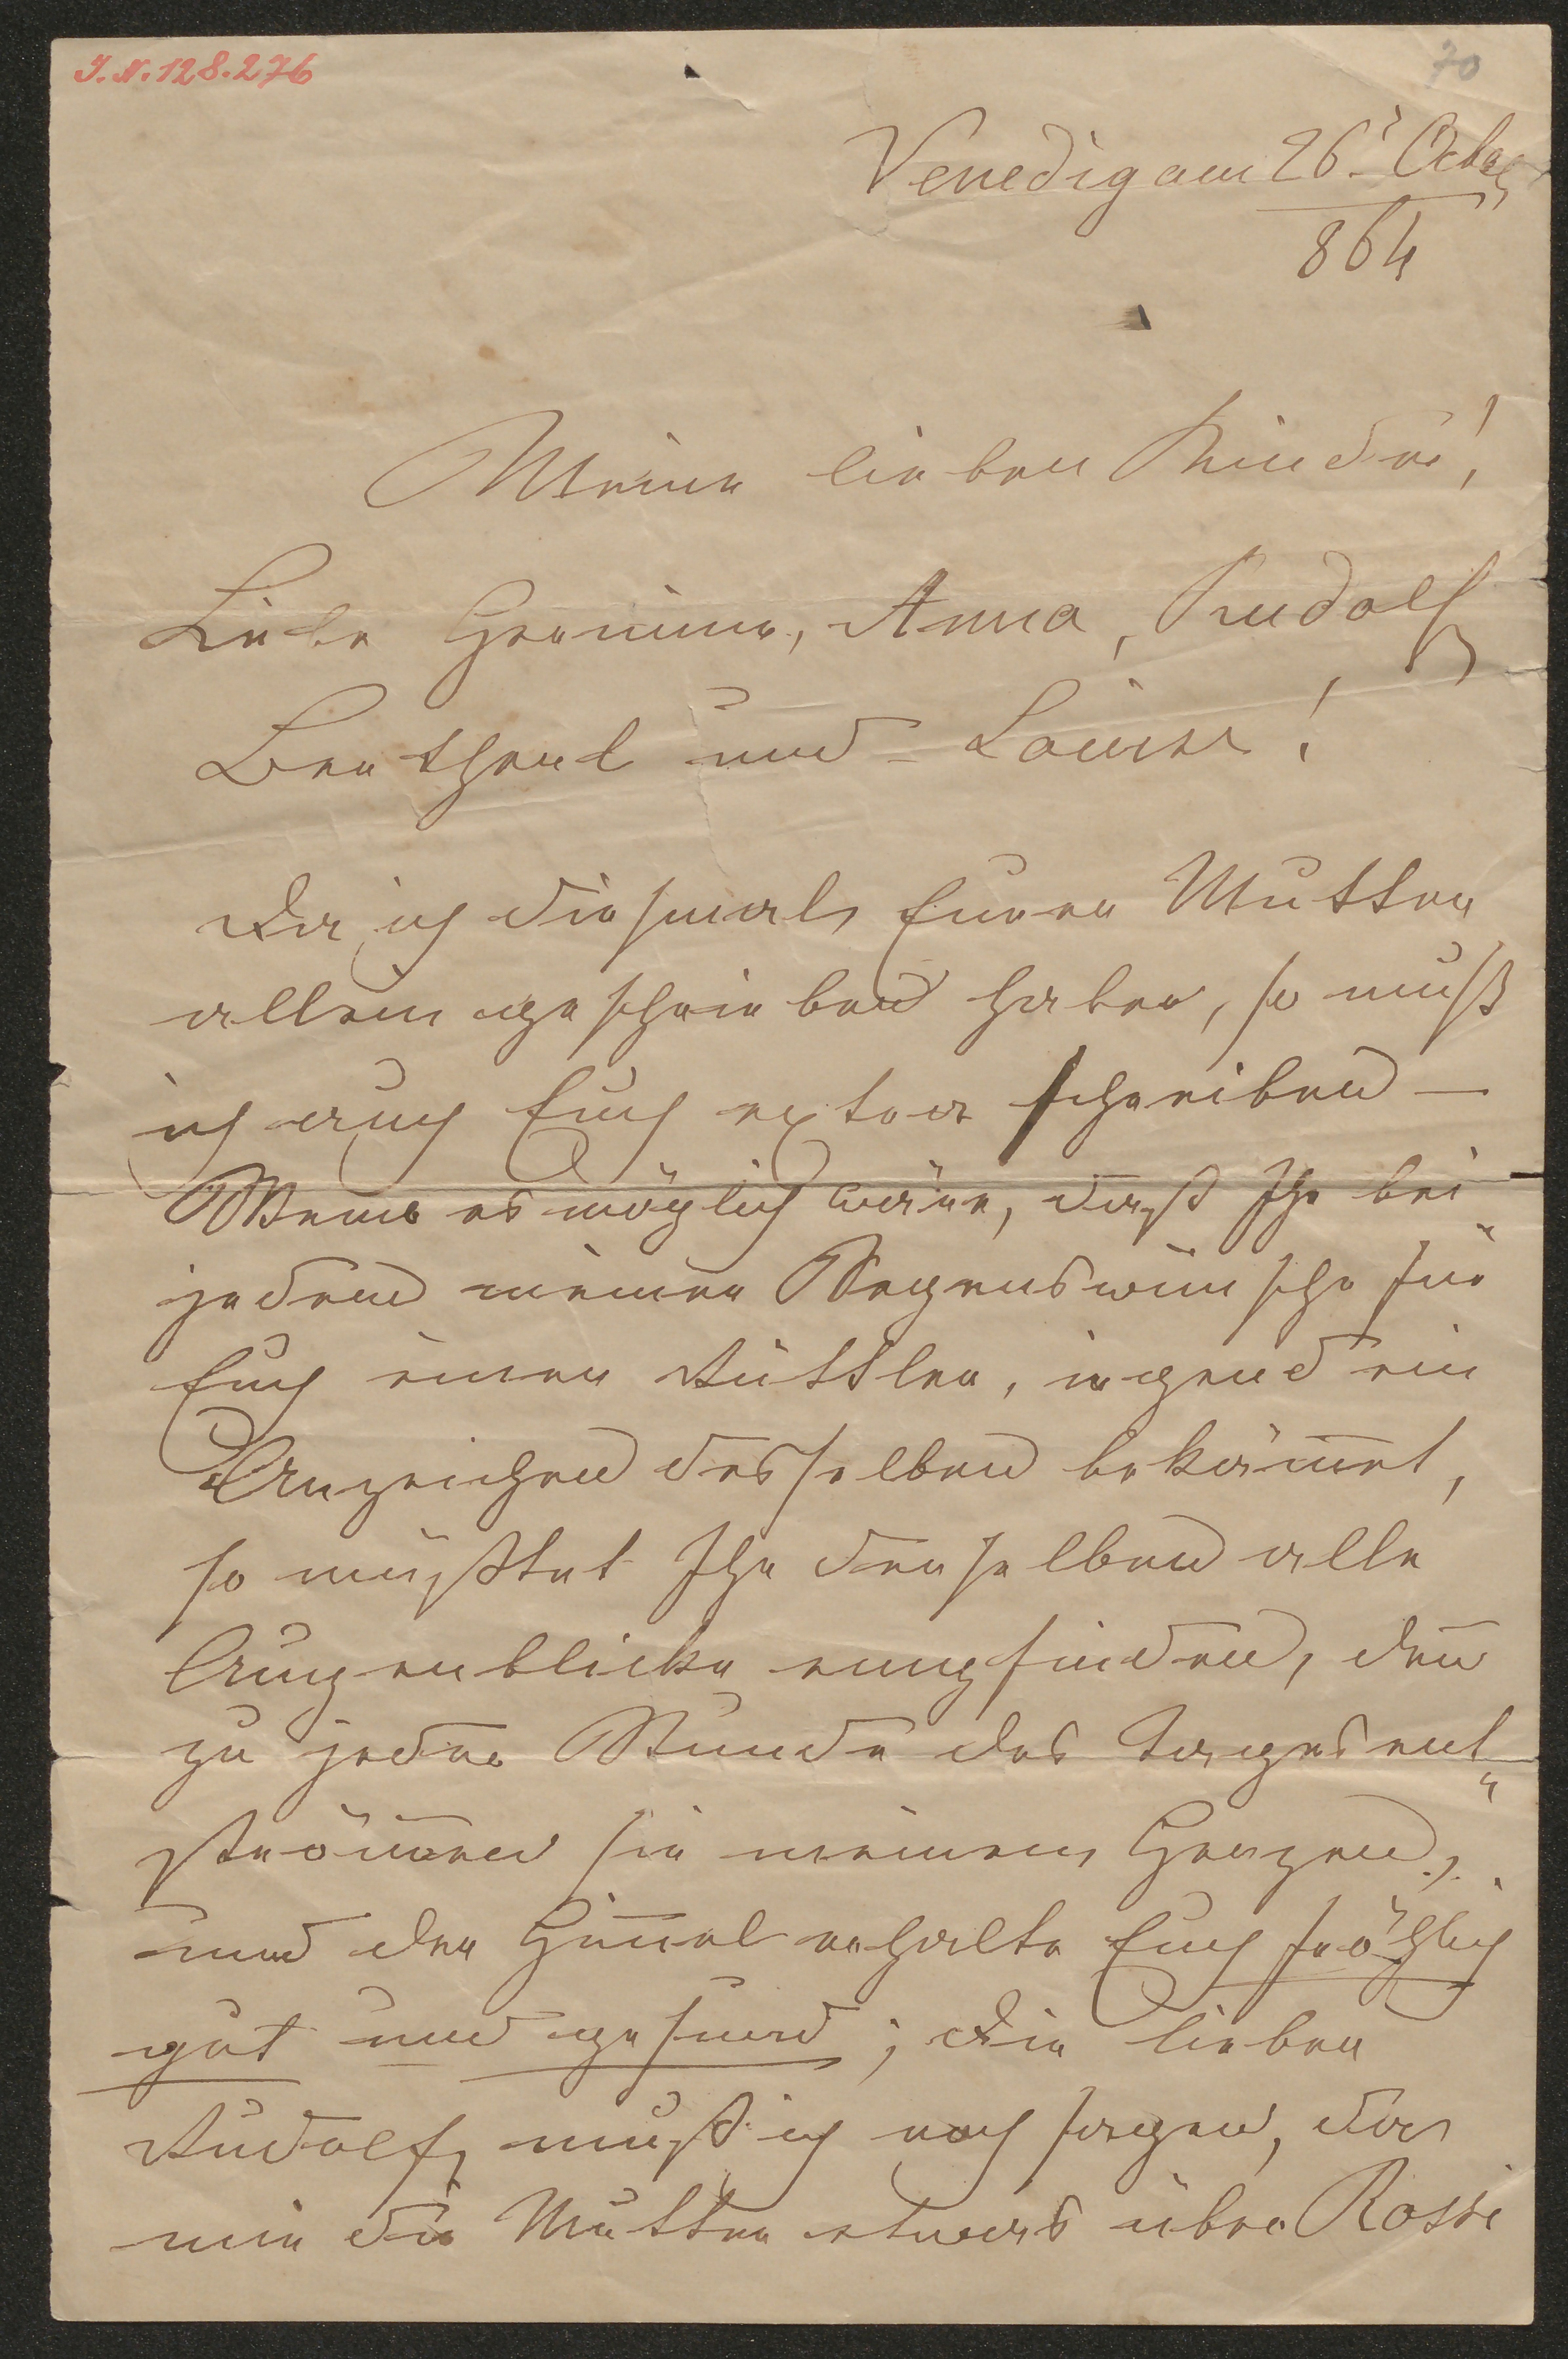 I.N. 128.276
70
Venedig am 26t. Octbr
864
Meine lieben Kinder!
Liebe Hermine, Anna, Rudolf
Berthend und Louise!
Da ich diesmal Eurer Mutter
allein geschrieben habe, so muß
ich auch Euch extra schreiben —
Wenn es möglich wäre, daß Ihr bei
jedem meiner Segenswünsche für
Euch einen Rüttler, irgend ein
Anzeichen desselben bekäm̄et,
so müßtet Ihr denselben alle
Augenblicke empfinden, den̄
zu jeder Stunde des Tages ent„
ström̄en sie meinem Herzen,
und der Him̄el erhalte Euch fröhlich
gut und gesund; Dir lieber
Rudolf, muß ich noch sagen, da
mir die Mutter etwas über Rossi